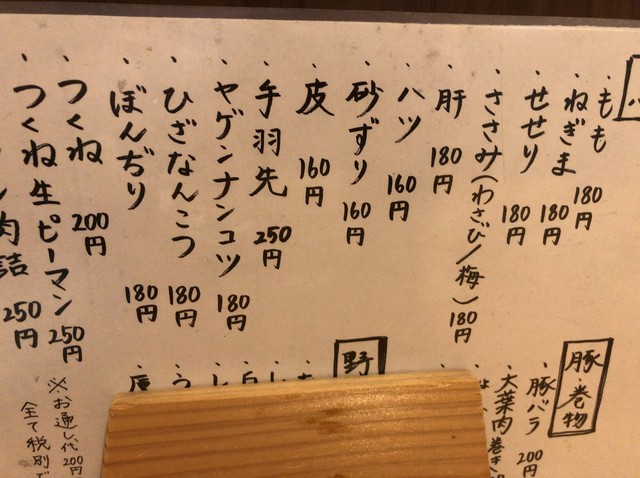 もも 180円
ねぎま 180円
せせり 180円
ささみ(わさび/梅) 180円
肝 180円
ハツ 160円
砂ずり 160円
皮 160円
手羽先 250円
ヤゲンナンコツ 180円
ひざなんこつ 180円
ぼんぢり 180円
つくね 200円
つくね生ピーマン 250円
肉詰 250円
豚・巻物
豚バラ 200
大葉肉巻き
野
※お通し代200円
全て税別で